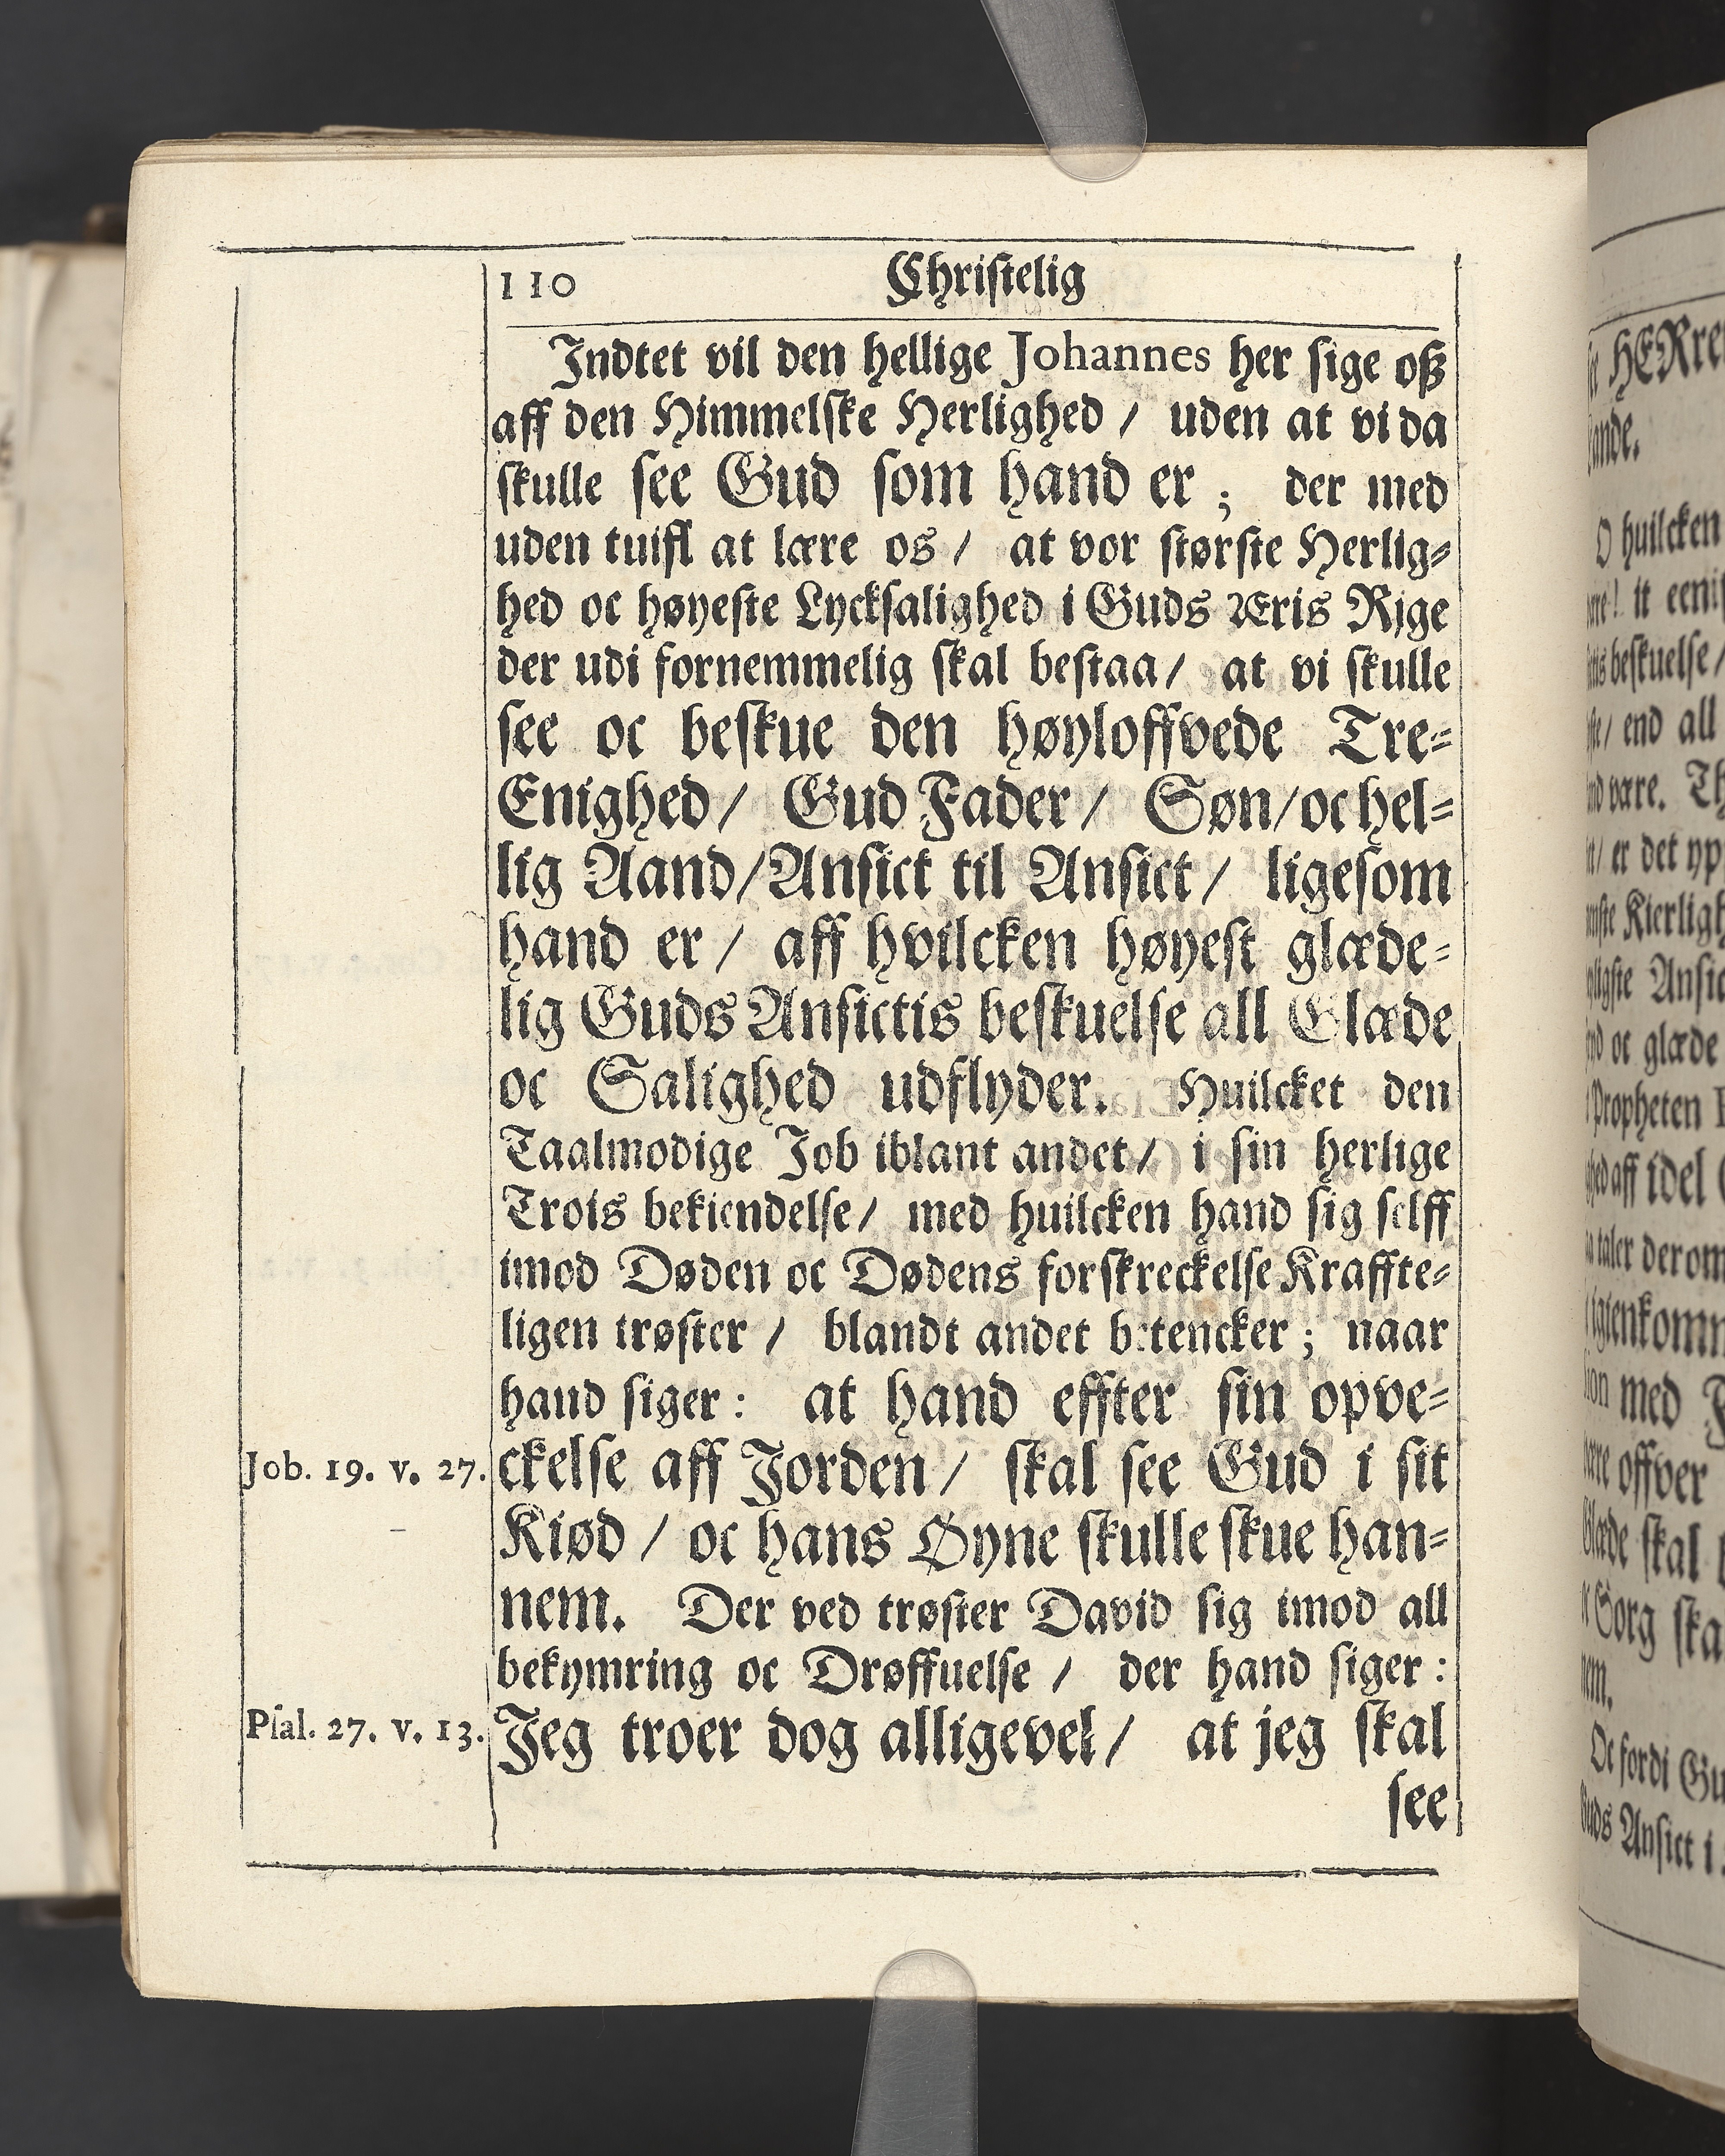 110 Christelig
Indtet vil den hellige Johannes her sige oß
aff den Himmelske Herlighed / uden at vi da
skulle see Gud som hand er ; der med
uden tuifl at lære os / at vor største Herlig-
hed oc høyeste Lycksalighed i Guds Æris Rige
der udi fornemmelig skal bestaa / at vi skulle
see oc beskue den høyloffvede Tre-
Enighed / Gud Fader / Søn / oc hel-
lig Aand / Ansict til Ansict / ligesom
hand er / aff hvilcken høyest glæde-
lig Guds Ansictis beskuelse all Glæde
oc Salighed udflyder. Huilcket den
Taalmodige Job iblant andet / i sin herlige
Trois bekiendelse / med huilcken hand sig selff
imod Døden oc Dødens forskreckelse Kraffte-
ligen trøster / blandt andet betencker ; naar
hand siger : at hand effter sin opve-
Job. 19. v. 27. ckelse aff Jorden / skal see Gud i sit
Kiød / oc hans Øyne skulle skue han-
nem. Der ved trøster David sig imod all
bekymring oc Drøffuelse / der hand siger :
Psal. 27. v. 13. Jeg troer dog alligevel / at jeg skal
see
HERre
ande.
O huilcken
beskuelse /
end all
være.
er det
Ansic
oc glæde
Propheten
aff idel
taler derom
med
offver
skal
Sorg ska
Oc fordi Gu
Ansict i